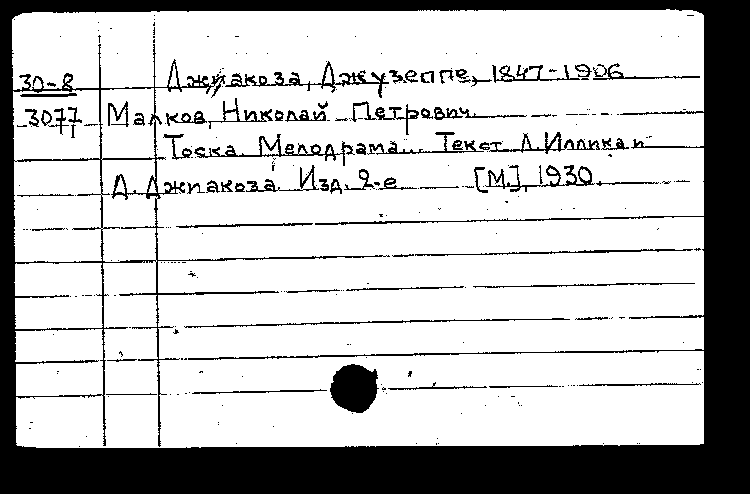 30-8 Джиакоза, Джузеппе, 1847-1906
3077 Малков, Николай Петрович.
Тоска. Мелодрама... Текст Л. Иллика и
Д. Джиакоза. Изд. 2-е [М.], 1930.